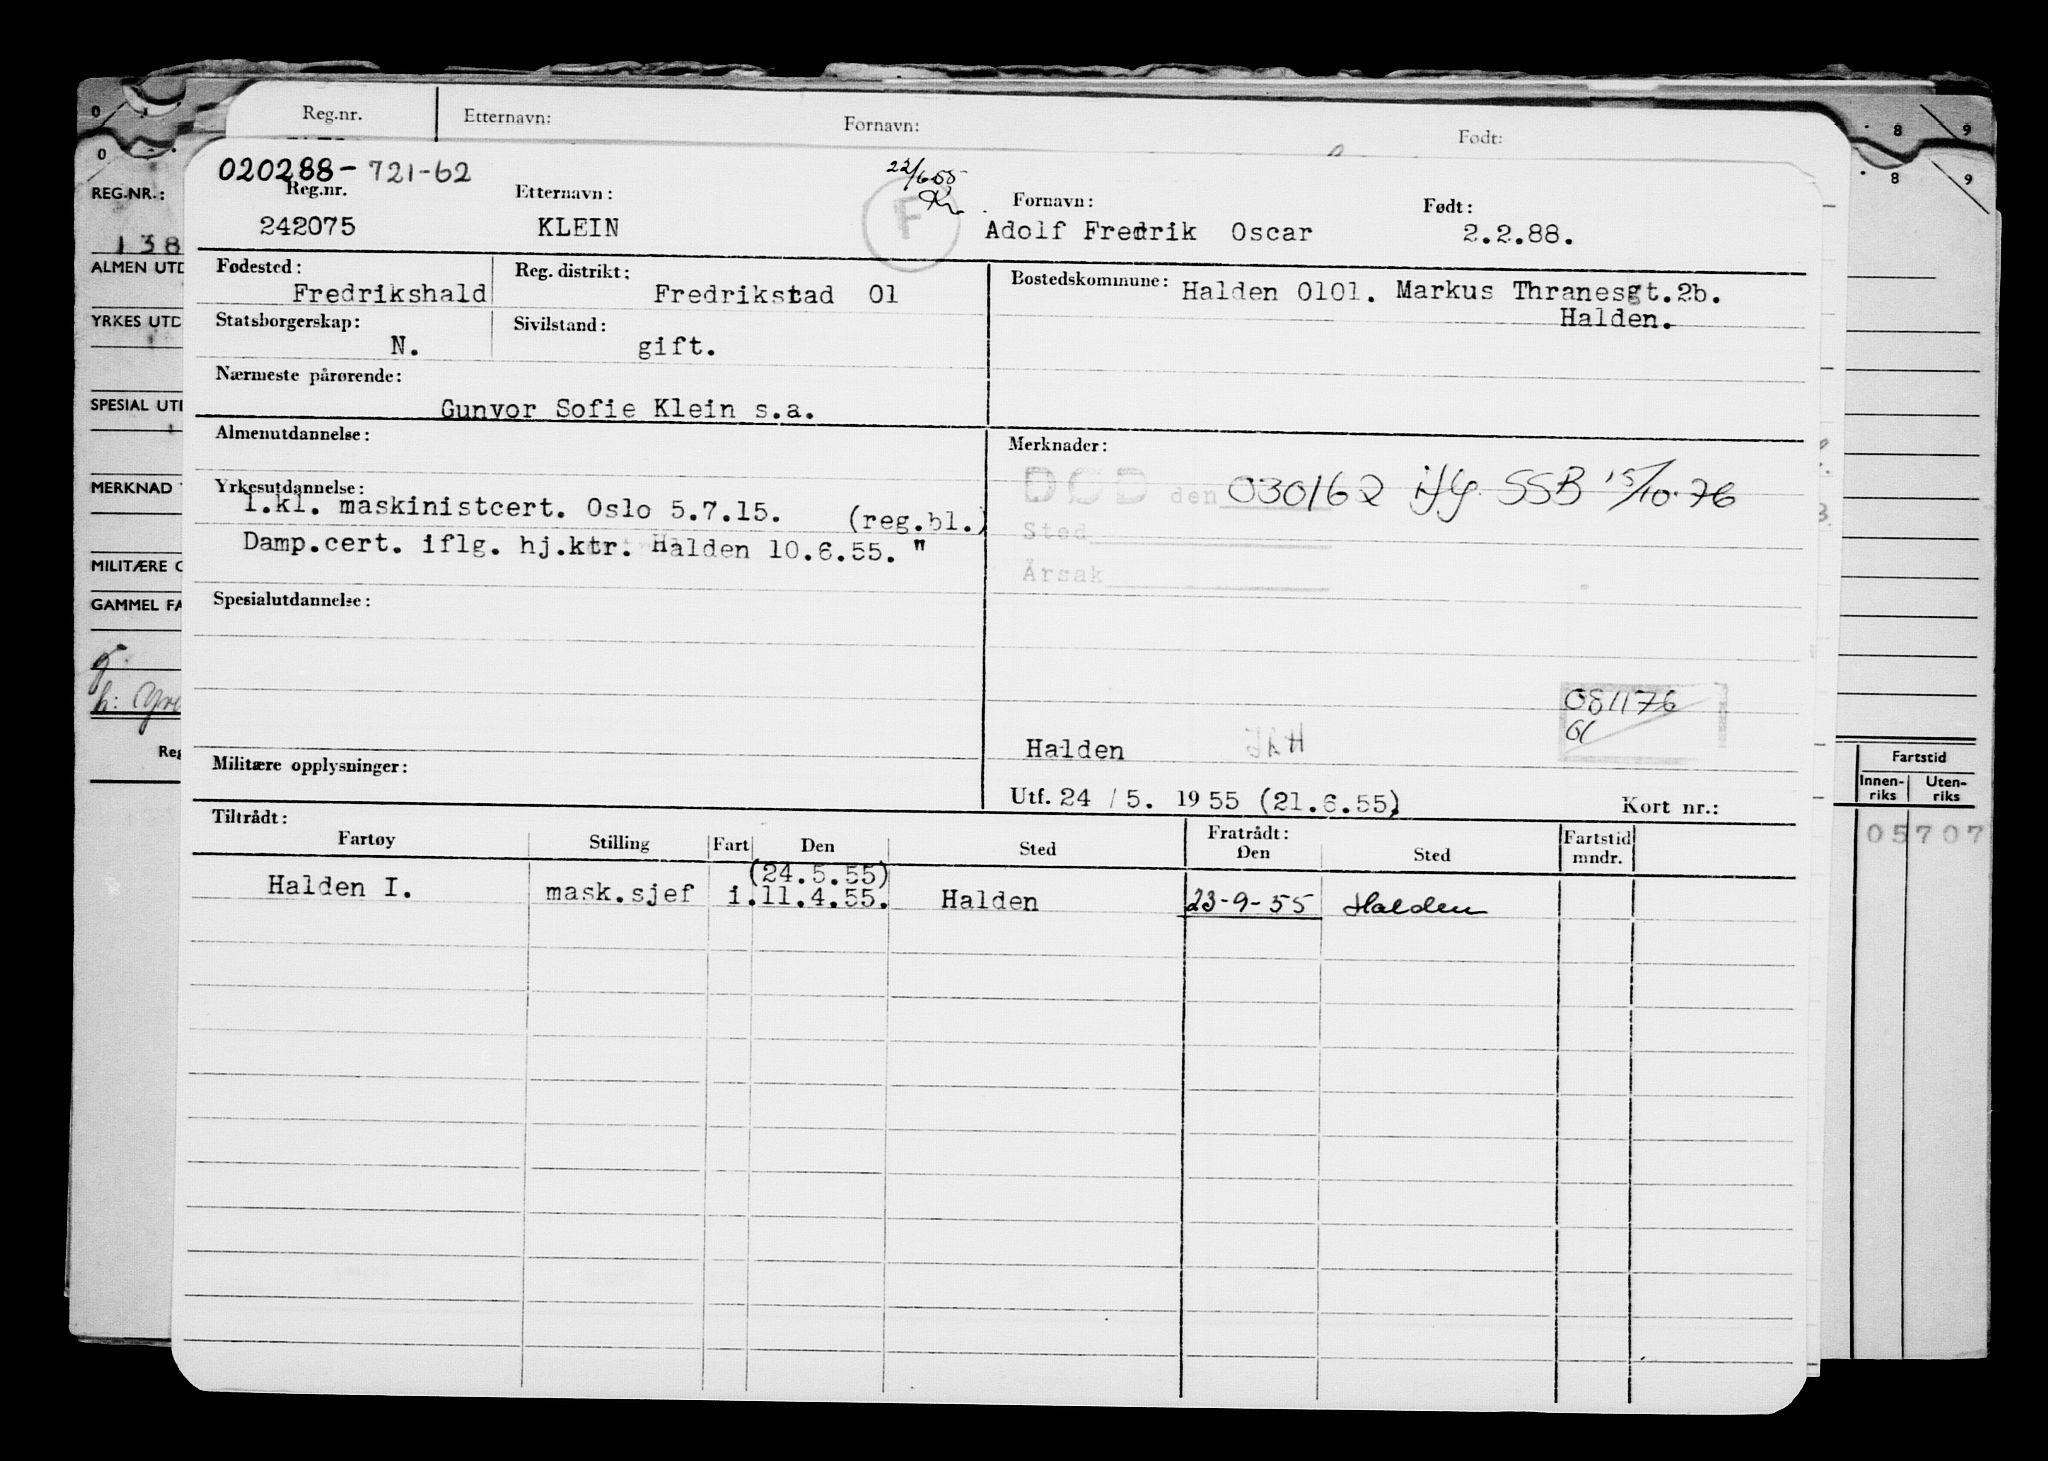 Reg.nr. Etternavn: Fornavn: Født:
0 8 9
0 8 9
020288-721-62 22/6 55
REG.NR.: Reg.nr. Etternavn: F Fornavn: Født:
138 242075 KLEIN Adolf Fredrik Oscar 2.2.88.
ALMEN UTD Fødested: Reg. distrikt: Bostedskommune:
Fredrikshald Fredrikstad 01 Halden 0101. Markus Thranesgt.2b.
YRKES UTD Statsborgerskap: Sivilstand: Halden.
N. gift.
Nærmeste pårørende:
SPESIAL UTD Gunvor Sofie Klein s.a.
Almenutdannelse: Merknader:
MERKNAD Yrkesutdannelse: DØD den 030162 iflg. SSB 15/10-76
1.kl. maskinistcert. Oslo 5.7.15. (reg.bl.)
Sted
Damp.cert. iflg. hj.ktr. Halden 10.6.55. "
MILITÆRE Årsak
GAMMEL FA Spesialutdannelse:
081176
Halden
Reg Militære opplysninger: Fartstid
Utf. 24 / 5. 1955 (21.6.55) Kort nr.: Innen-riks Uten-riks
Tiltrådt: Fratrådt: 05707
Fartøy Stilling Fart Den Sted Den Sted Fartstid mndr.
(24.5.55)
Halden I. mask.sjef i. 11.4.55. Halden 23-9-55 Halden